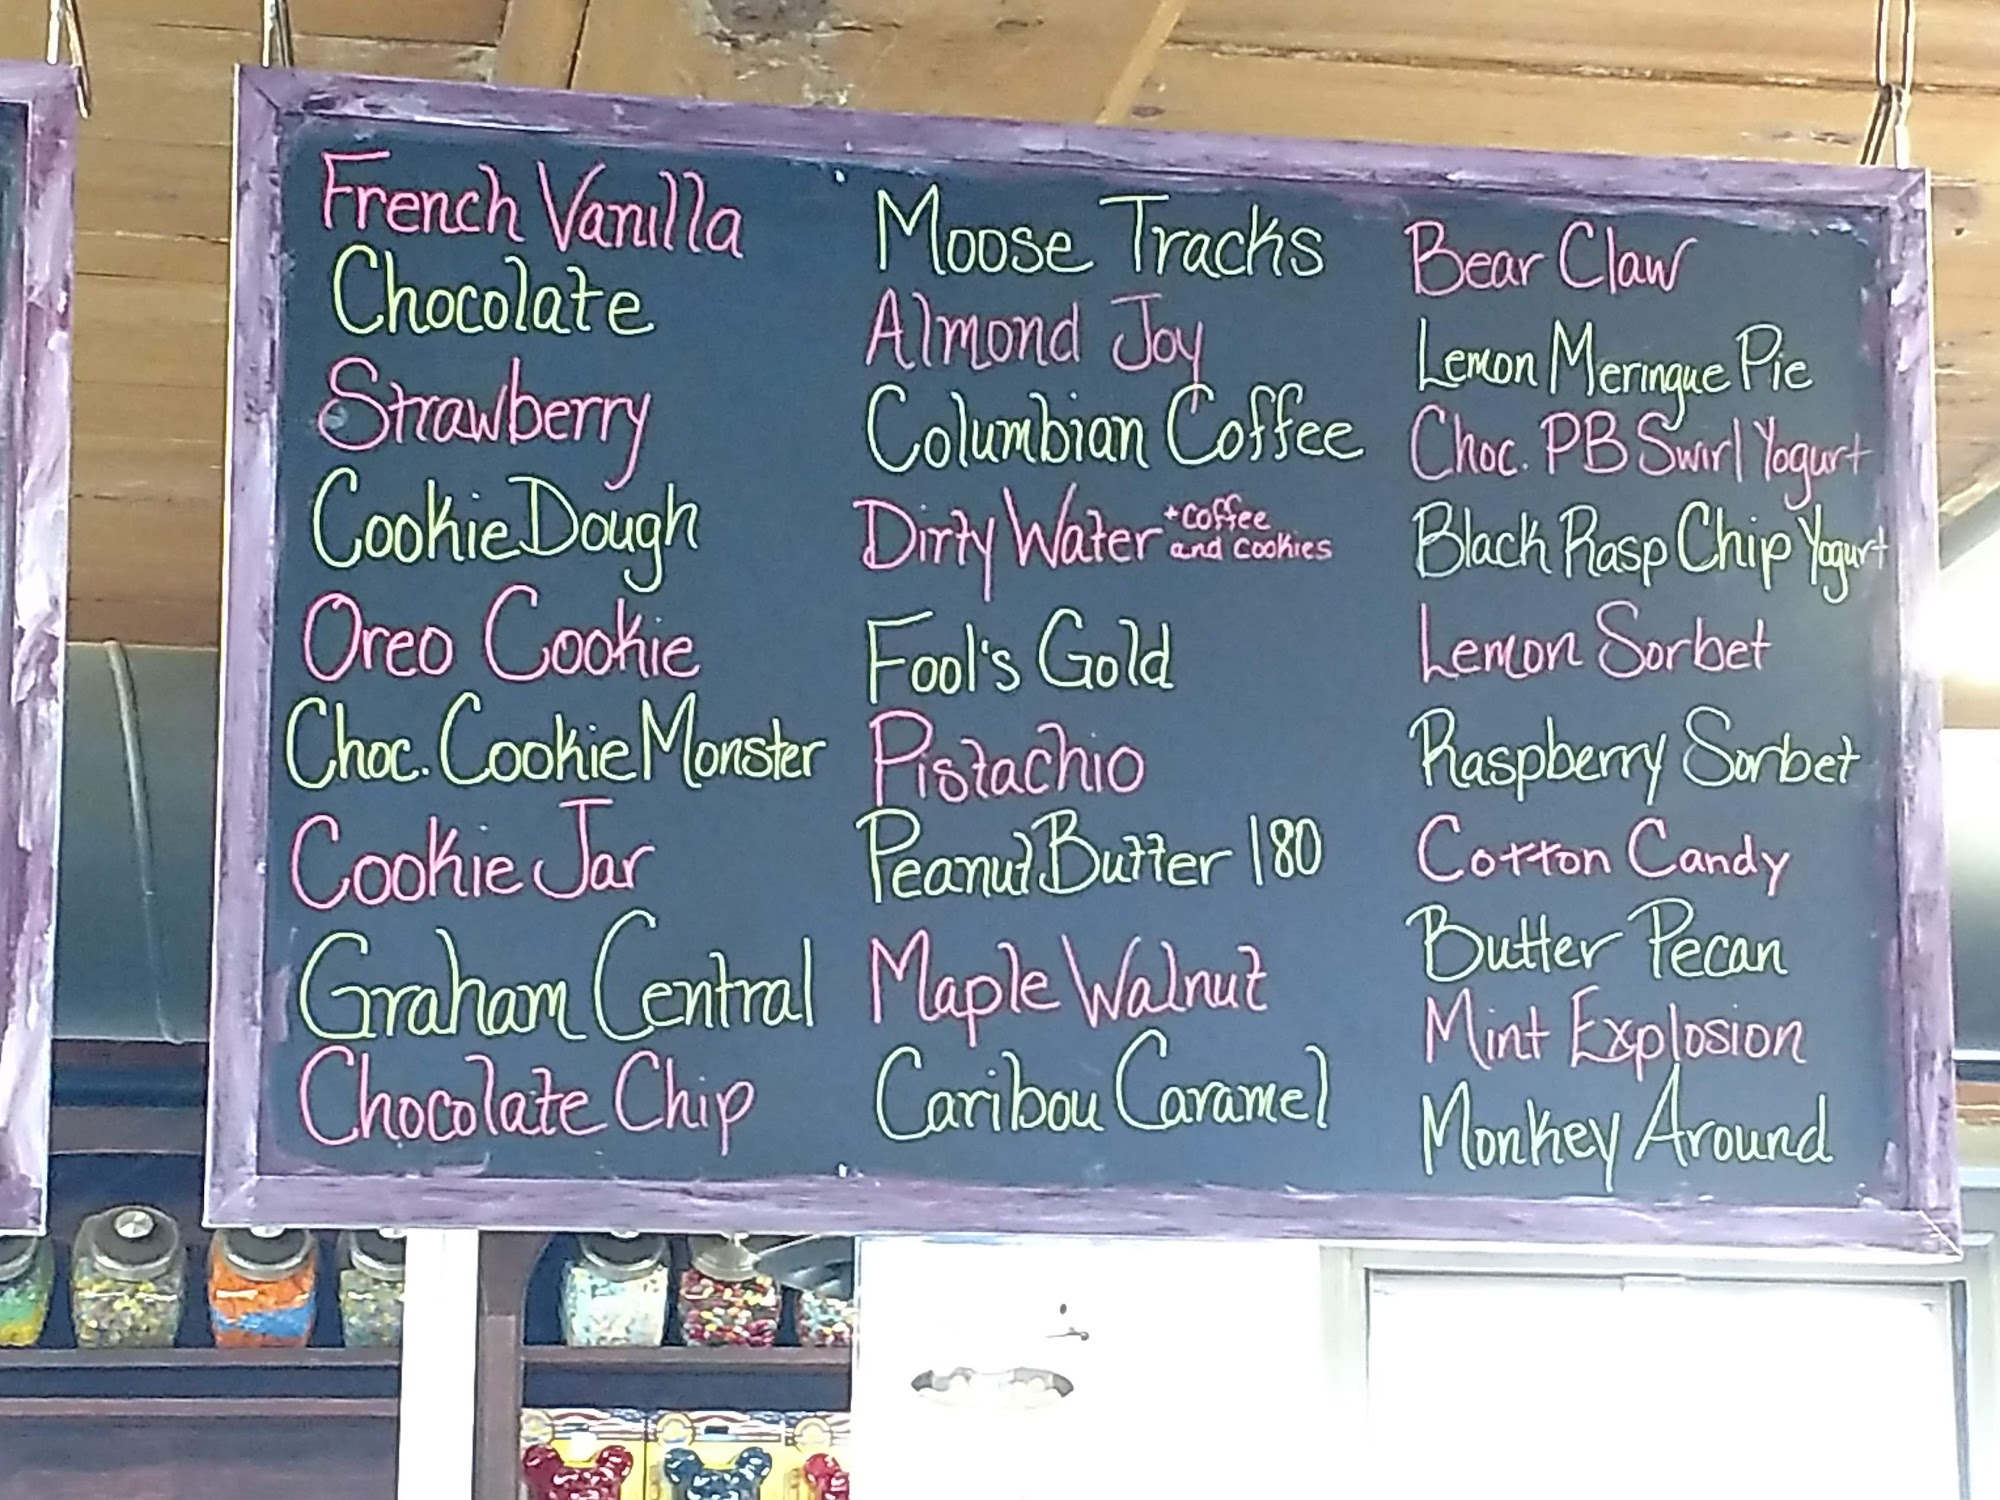 French Vanilla
Chocolate
Strawberry
Cookie Dough
Oreo Cookie
Choc. Cookie Monster
Cookie Jar
Graham Central
Chocolate Chip
Moose Tracks
Almond Joy
Columbian Coffee
Dirty Water *coffee
and cookies
Fool's Gold
Pistachio
Peanut Butter 180
Maple Walnut
Caribou Caramel
Bear Claw
Lemon Meringue Pie
Choc. PB Swirl Yogurt
Black Rasp Chip Yogurt
Lemon Sorbet
Raspberry Sorbet
Cotton Candy
Butter Pecan
Mint Explosion
Monkey Around